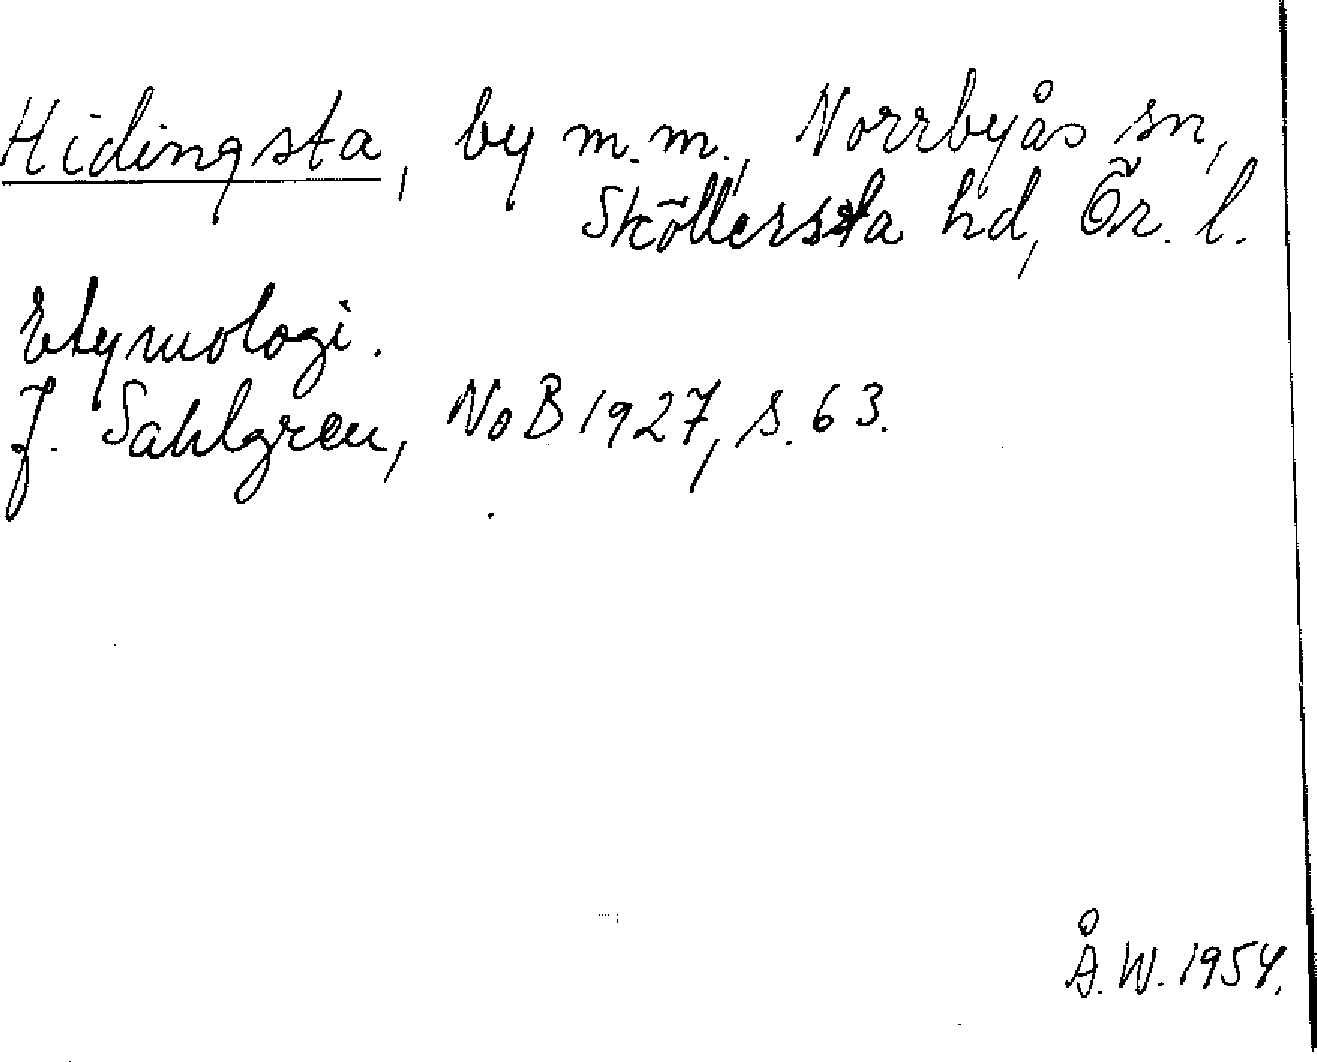 Hidingsta, by m.m., Norrbyås sn,
Sköllersta hd, Ör. l.
Etymologi.
J. Sahlgren, NoB 1927, s. 63.
Å.W. 1954.